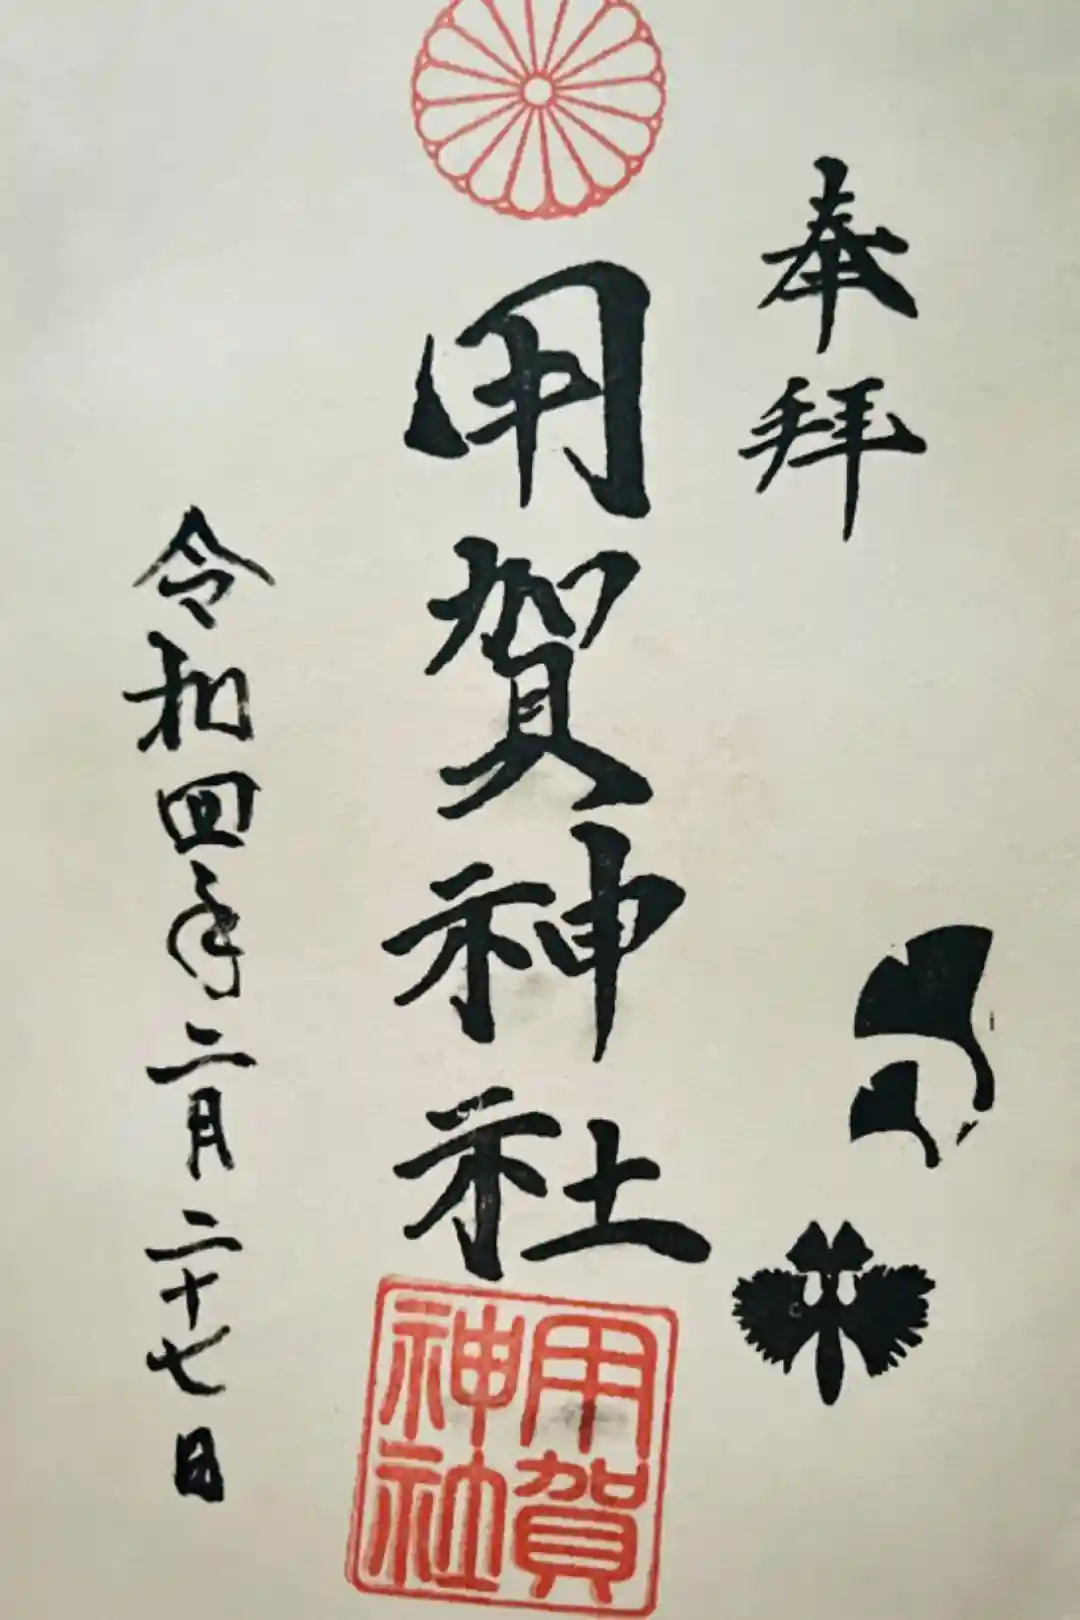 奉拝
用賀神社
用賀神社
令和四年二月二十七日